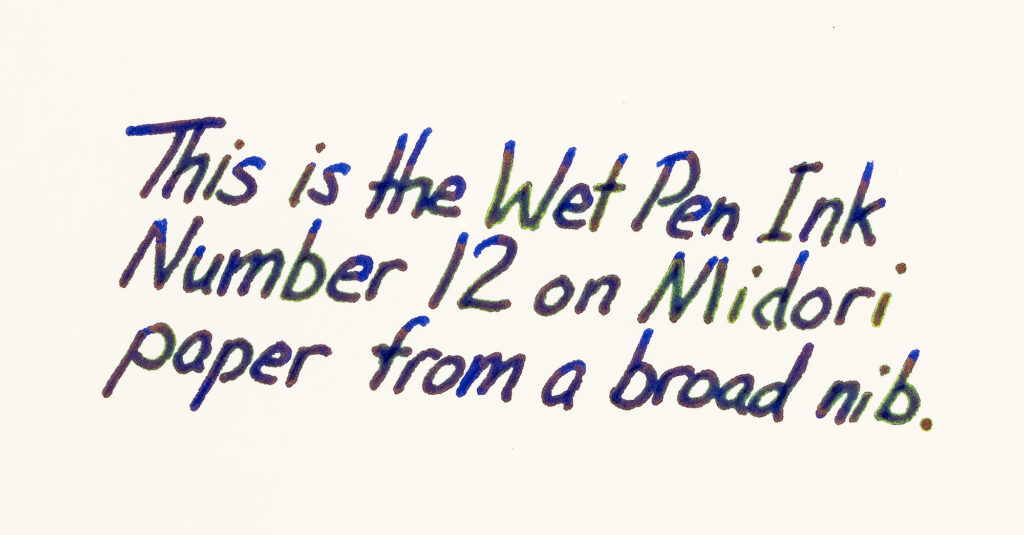 This is the Wet Pen Ink
Number 12 on Midori
paper from a broad nib.